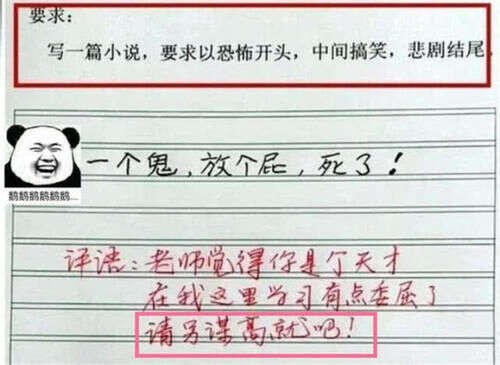 要求:
写一篇小说，要求以恐怖开头，中间搞笑，悲剧结尾
一个鬼，放个屁，死了！
鹅鹅鹅鹅鹅鹅....
评语：老师觉得你是个天才
在我这里学习有点委屈了
请另谋高就吧！